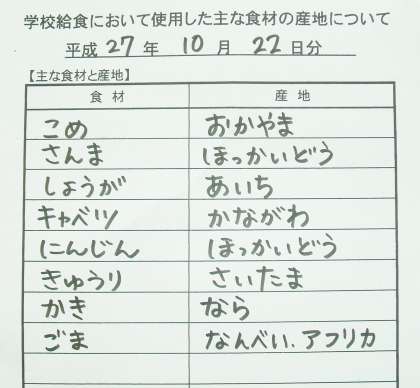 学校給食において使用した主な食材の産地について
平成 27 年 10 月 22 日分
【主な食材と産地】
食材 産地
こめ おかやま
さんま ほっかいどう
しょうが あいち
キャベツ かながわ
にんじん ほっかいどう
きゅうり さいたま
かき なら
ごま なんべい、アフリカ